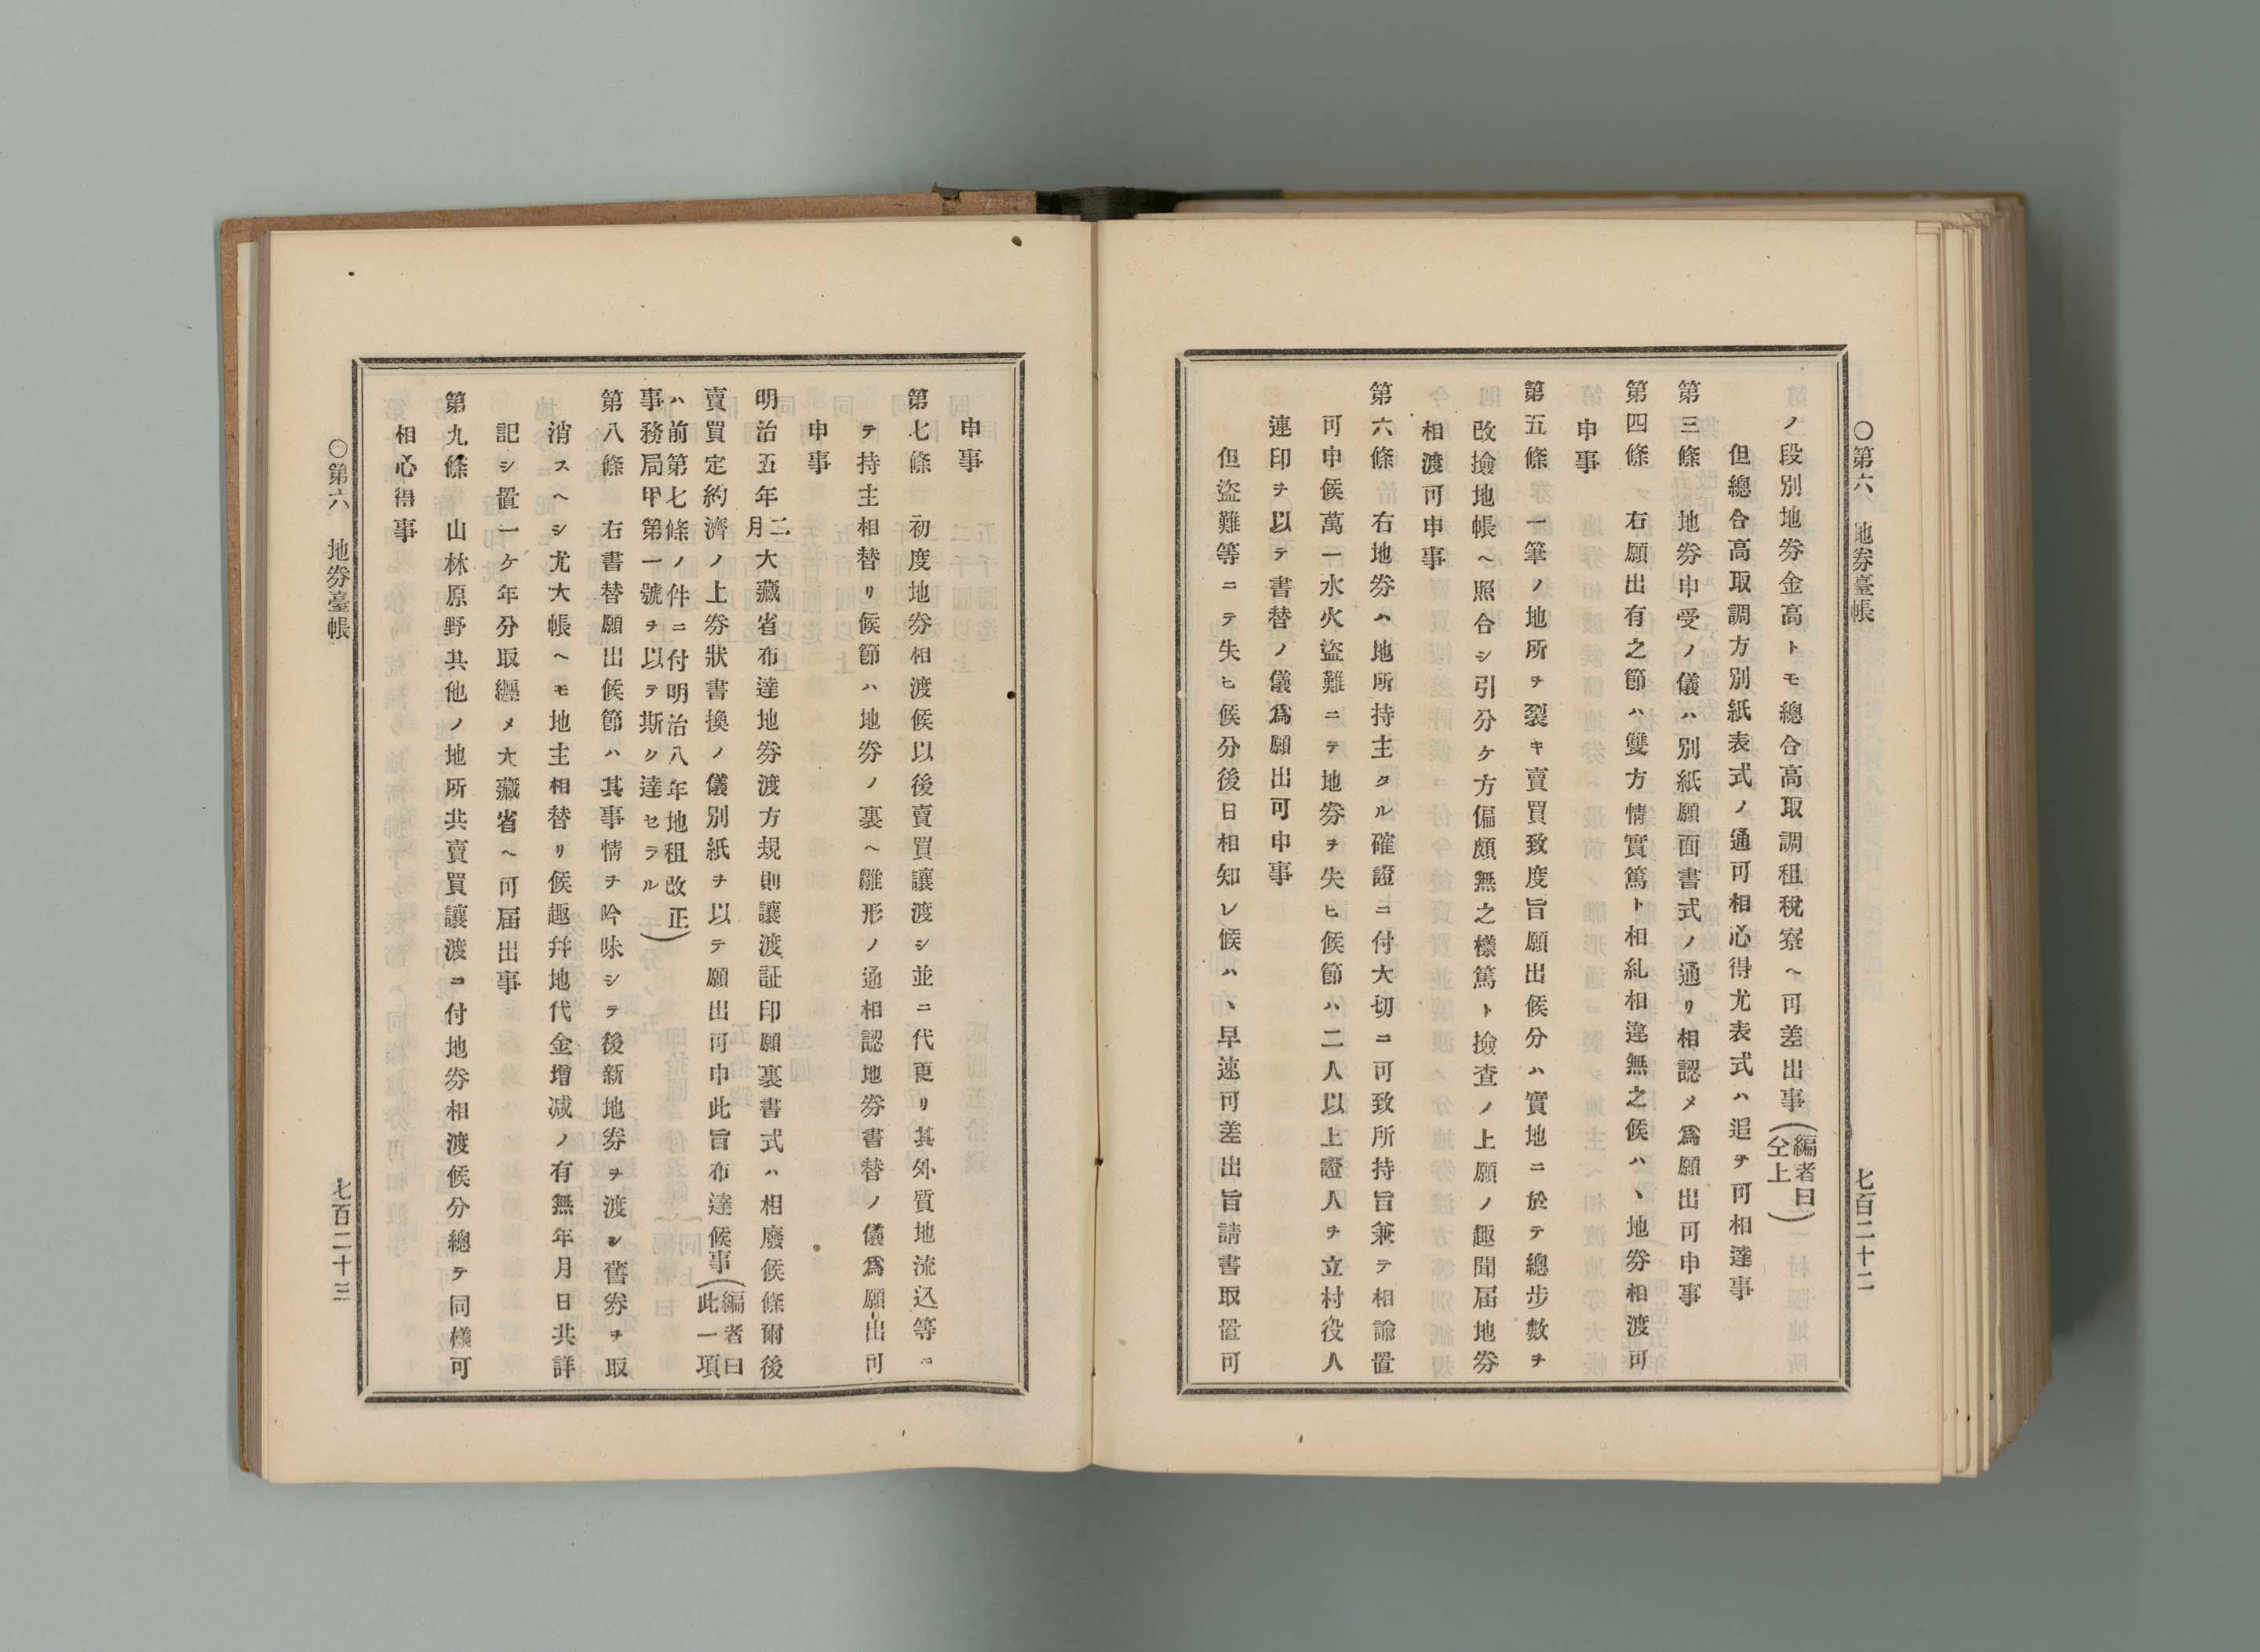 ○第六　地券臺帳　七百二十二
ノ段別地券金高トモ總合高取調租税寮ヘ可差出事(編者曰仝上)
但總合高取調方別紙表式ノ通可相心得尤表式ハ追テ可相達事
第三條　地券申受ノ儀ハ別紙願面書式ノ通リ相認メ爲願出可申事
第四條　右願出有之節ハ雙方情實篤ト相糺相違無之候ハヽ地券相渡可
申事
第五條　一筆ノ地所ヲ裂キ賣買致度旨願出候分ハ實地ニ於テ總歩數ヲ
改撿地帳ヘ照合シ引分ケ方偏頗無之樣篤ト撿査ノ上願ノ趣聞届地券
相渡可申事
第六條　右地券ハ地所持主タル確證ニ付大切ニ可致所持旨兼テ相諭置
可申候萬一水火盜難ニテ地券ヲ失ヒ候節ハ二人以上證人ヲ立村役人
連印ヲ以テ書替ノ儀爲願出可申事
但盜難等ニテ失ヒ候分後日相知レ候ハヽ早速可差出旨請書取置可
申事
第七條　初度地券相渡候以後賣買讓渡シ並ニ代更リ其外質地流込等ニ
テ持主相替リ候節ハ地券ノ裏ヘ雛形ノ通相認地券書替ノ儀爲願出可
申事
明治五年二月大藏省布達地券渡方規則讓渡証印願裏書式ハ相廢候條爾後
賣買定約濟ノ上券狀書換ノ儀別紙ヲ以テ願出可申此旨布達候事(編者曰此一項
ハ前第七條ノ件ニ付明治八年地租改正
事務局甲第一號ヲ以テ斯ク達セラル)
第八條　右書替願出候節ハ其事情ヲ吟味シテ後新地券ヲ渡シ舊券ヲ取
消スヘシ尤大帳ヘモ地主相替リ候趣并地代金增减ノ有無年月日共詳
記シ置一ケ年分取纒メ大藏省ヘ可届出事
第九條　山林原野其他ノ地所共賣買讓渡ニ付地券相渡候分總テ同樣可
相心得事
○第六　地券臺帳　七百二十三